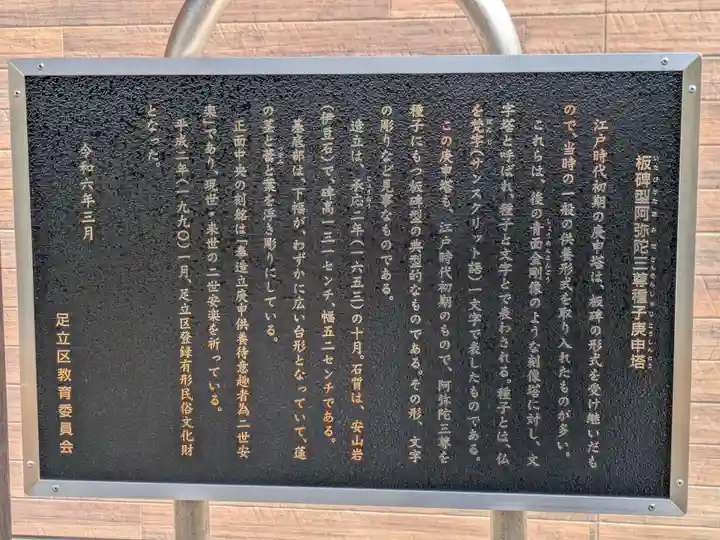 板碑型阿弥陀三尊種子庚申塔
江戸時代初期の庚申塔は、板碑の形式を受け継いだも
ので、当時の一般の供養形式を取り入れたものが多い。
これらは、後の青面金剛像のような刻像塔に対し、文
字塔と呼ばれ、種子と文字とで表わされる。種子とは、仏
を梵字(サンスクリット語)一文字で表したものである。
この庚申塔も、江戸時代初期のもので、阿弥陀三尊を
種子にもつ板碑型の典型的なものである。その形、文字
の彫りなど見事なものである。
造立は、承応二年(一六五三)の十月。石質は、安山岩
(伊豆石)で、碑高一三一センチ、幅五二センチである。
基底部は、下幅がわずかに広い台形となっていて、蓮
の茎と蕾と葉を浮き彫りにしている。
正面中央の刻銘は「奉造立庚申供養待意趣者為二世安
楽」であり、現世・来世の二世安楽を祈っている。
平成二年(一九九〇)一月、足立区登録有形民俗文化財
となった。
令和六年三月
足立区教育委員会